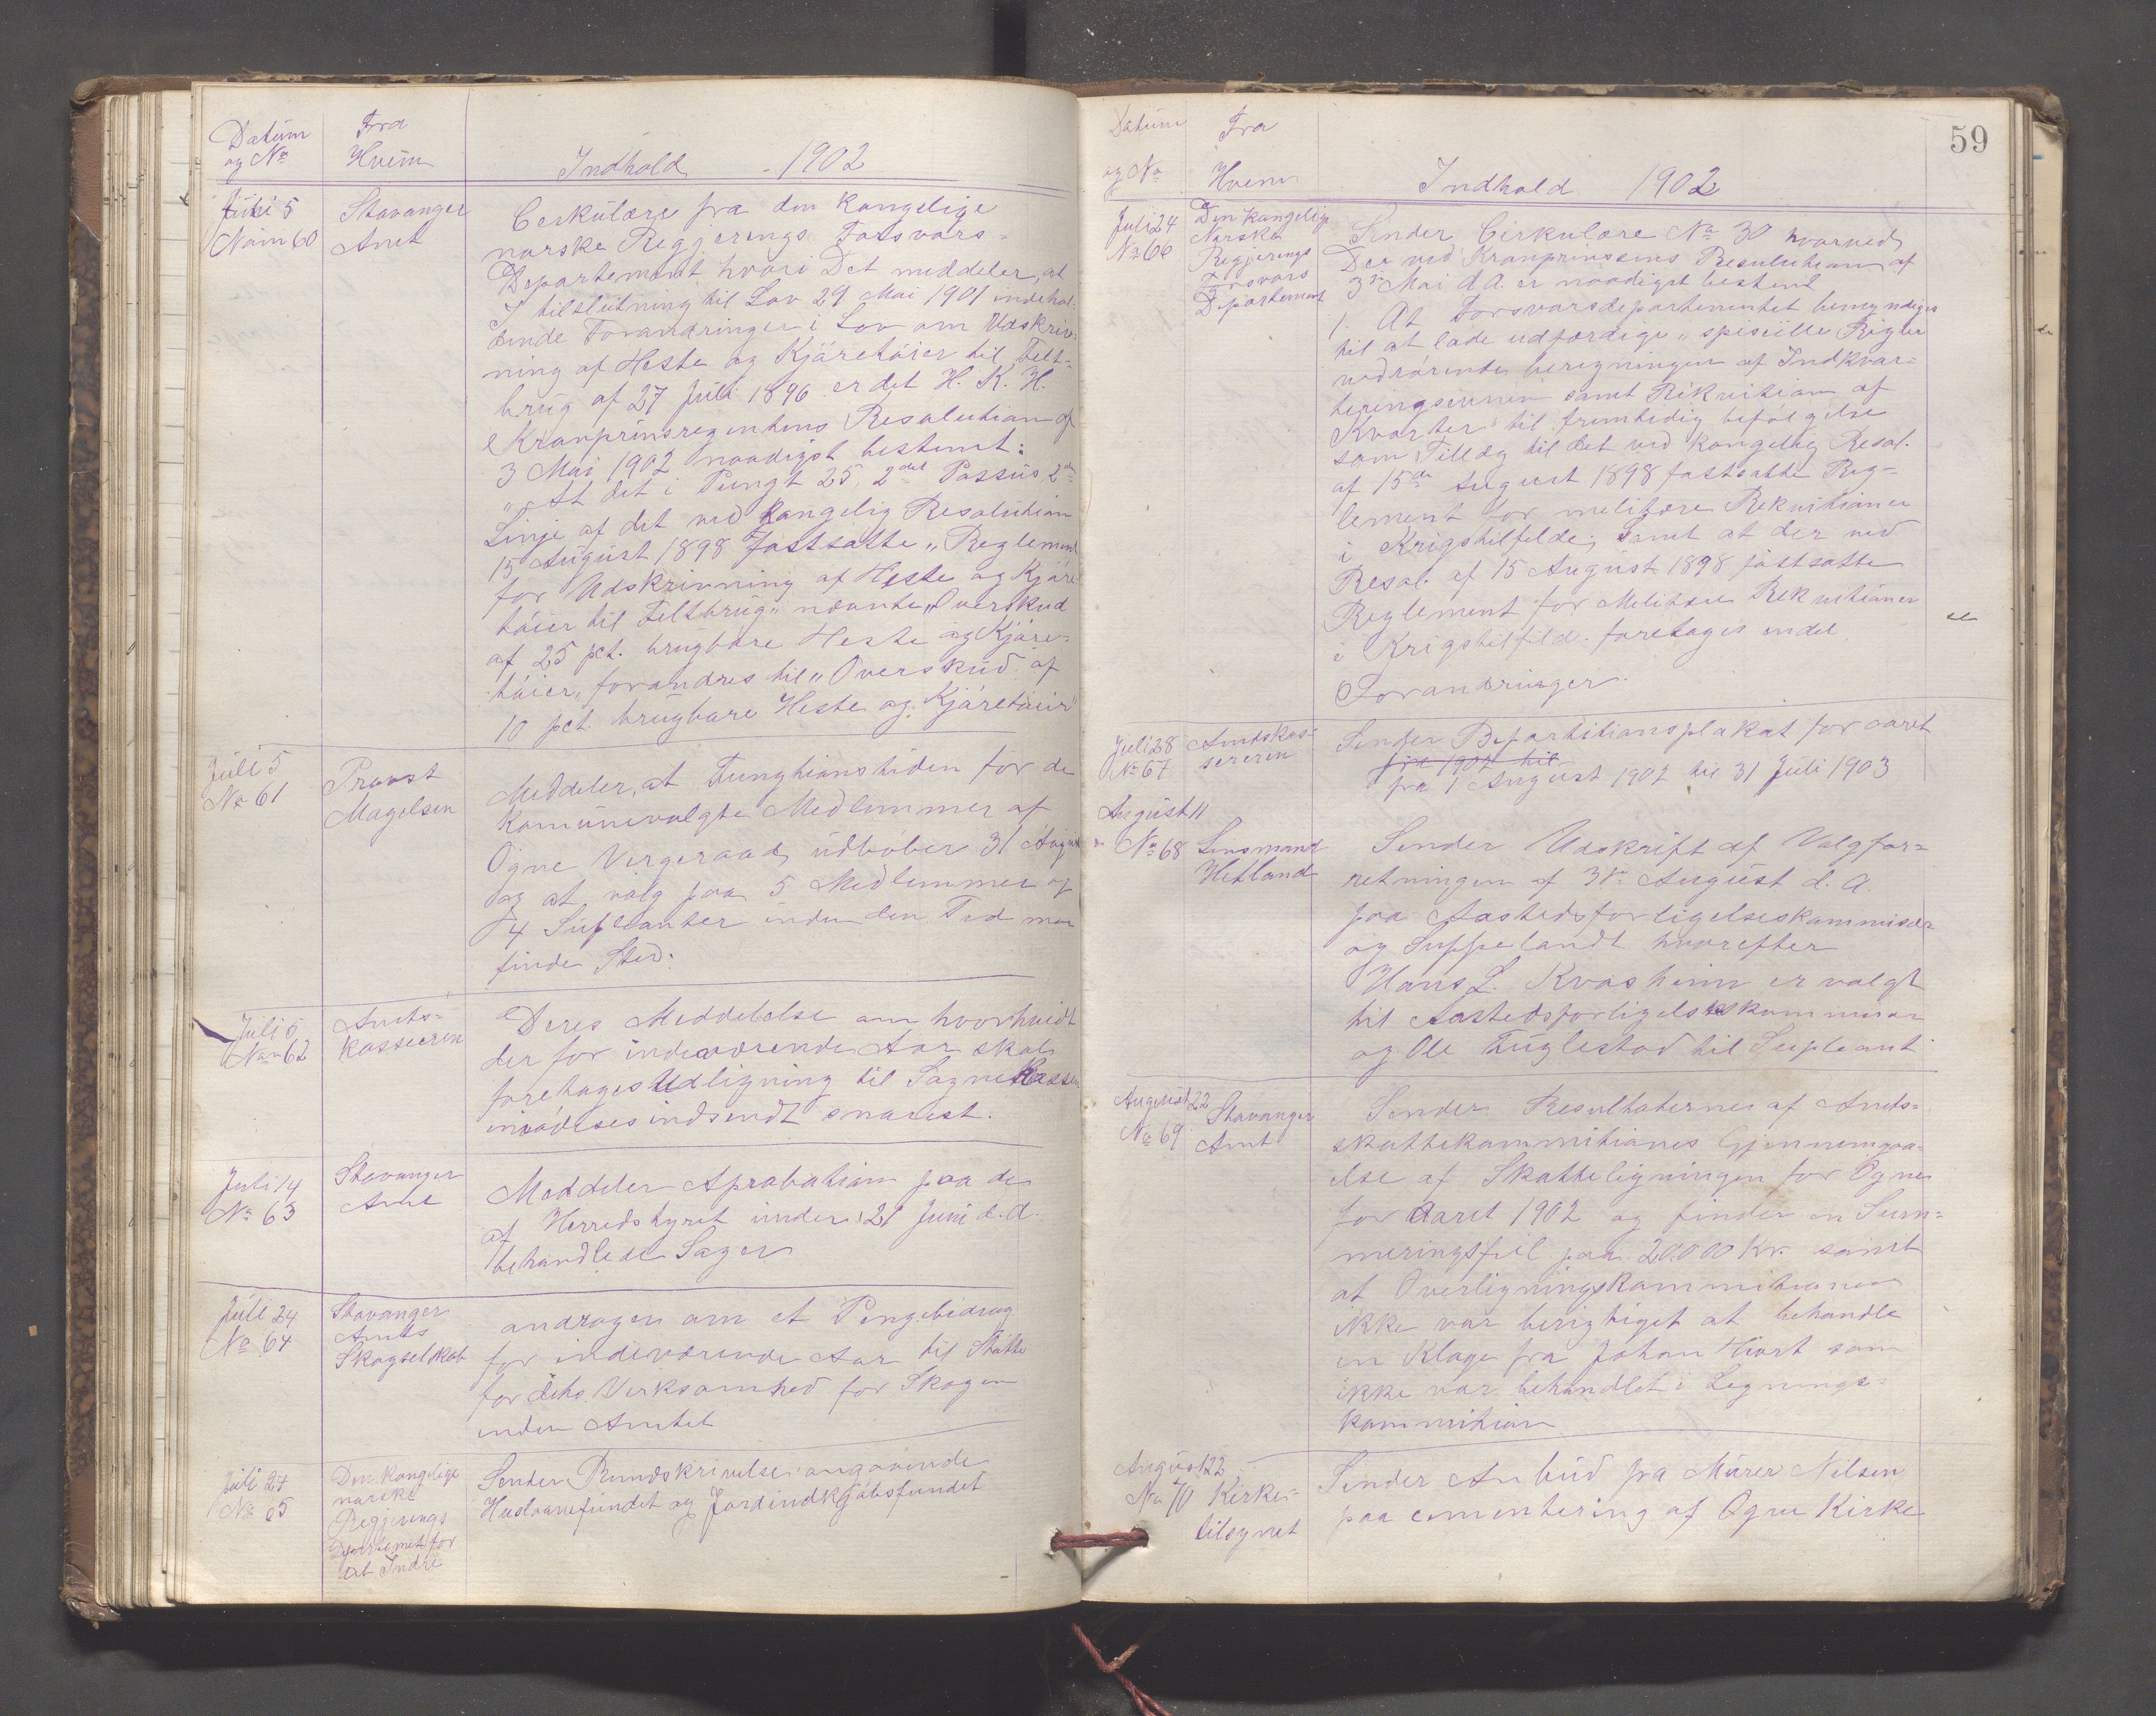 Datum
og No
Fra
Hvem
Indhold - 1902
Juli 5
Num 60
Stavanger
Amt
Cerkulære fra den Kongelige
norske Regjerings Forsvars-
Departement hvori Det meddeler, at
I tilslutning til Lov 29 Mai 1901 indehol-
dende Forandringer i Lov om Udskriv-
ning af Heste og Kjäretöier til Felt-
brug af 27 Juli 1896 er det H. K. H.
Kronprinsregentens Resolution af
3 Mai 1902 naadigst bestemt:
"At det i Pungt 25, 2det Passus 2den
Linje af det ved Kongelig Resolution
15 August 1898 fastsatte "Reglement
for Udskrivning af Heste og Kjäre-
töier til Feltbrug" nævnte "Overskud
af 25 pct. brugbare Heste og Kjäre-
töier" forandres til "Overskud af
10 pct. brugbare Heste og Kjäretöier
Juli 5
No 61
Provst
Magelsen
Meddeler, at Funghionstiden for de
Komunevalgte Medlemmer af
Ogne Vergeraad udlöber 31 August
og at valg paa 5 Medlemmer og
4 Supleanter inden den Tid maa
finde Sted.
Juli 5
No 62
Amts-
kasseeren
Deres Meddelelse om hvorhvidt
der for indeværende Aar skal
foretages Udligning til Sognekassen
indsendt snarest.
Juli 14
No 63
Stavanger
Amt
Meddeler Aprobation paa de
af Herredstyret under 21 Juni d. A.
behandlede Sager
Juli 24
No 64
Stavanger
Amts
Skogselskab
andrager om et Pengebidrag
for indeværende Aar til Stötte
for dets Verksomhed for Skogen
inden Amtet
Juli 24
No 65
Den Kongelige
norske
Regjerings
Departemet for
det Indre
Sender Rundskrivelse angaaende
Huslaanefundet og Jordindkjöbsfundet
59
Datum
og No
Fra
Hvem
Indhold 1902
Juli 24
No 66
Den Kongelige
Norske
Regjerings
Forsvars
Departement
Sender Cirkulære No 30 hvorved
Der ved Kronprinssens Resulution af
3die Mai d A. er naadigst bestemt
1. At Forsvarsdepartementet bemyndiges
til at lade udfærdige "spesielle Regler
vedrörende beregningen af Indkvar-
teringsevnen samt Rikvition af
Kvarter" til fremtidig befölgelse
som Tillæg til det ved Kongelig Resol.
af 15de August 1898 fastsatte Reg-
lement for melitære Rekvitioner
i Krigstilfelde, samt at der ved
Resol. af 15 August 1898 fastsatte
Reglement for Melitære Rekvitioner
i Krigstilfelde foretages endel
Forandringer.
Juli 28
No 67
Amtskas-
sereren
Sender Repartitionsplakat for aaret
fra 1902 til
fra 1 August 1902 til 31 Juli 1903
August 11
No 68
Lensmand
Hetland
Sender Udskrift af Valgfor-
retningen af 3die August d. A.
paa Aastedsforligelseskommisær
og Suppelandt hvorefter
Hans L. Kvasheim er valgt
til Aastedsforligelseskommisær
og Ole Fuglestad til Supleant
August 22
No 69
Stavanger
Amt
Sender Resultaterne af Amts-
skattekommitianes Gjennemgaa-
else af Skatteligningen for Ogne
for Aaret 1902 og finder en Sum-
meringsfeil paa 20000 Kr. samt
at Overligningskommitianen
ikke var berigtiget at behandle
en Klage fra Johan Hiort som
ikke var behandlet i Legnings-
kommitian
August 22
No 70
Kirke-
tilsynet
Sender Anbud fra Murer Nilsen
paa cementering af Ogne Kirke